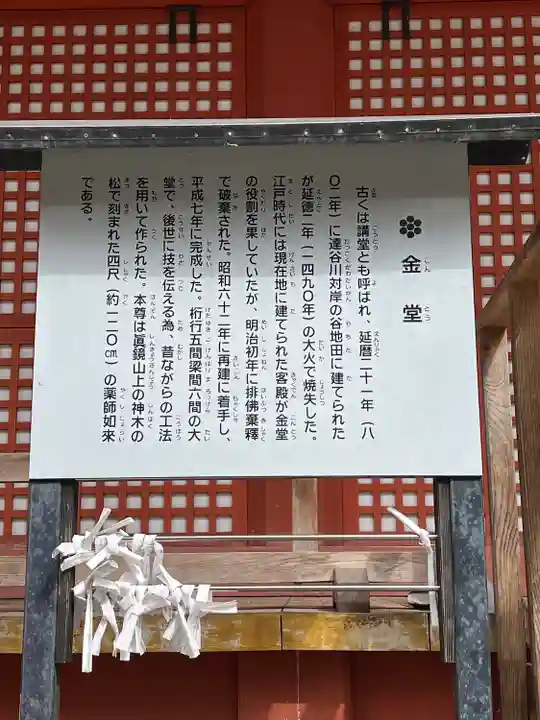 金堂
古くは講堂とも呼ばれ、延暦二十一年（八
〇二年）に達谷川対岸の谷地田に建てられた
が延徳二年（一四九〇年）の大火で焼失した。
江戸時代には現在地に建てられた客殿が金堂
の役割を果していたが、明治初年に排佛棄釋
で破棄された。昭和六十二年に再建に着手し、
平成七年に完成した。桁行五間梁間六間の大
堂で、後世に技を伝える為、昔ながらの工法
を用いて作られた。本尊は眞鏡山上の神木の
松で刻まれた四尺（約一二〇㎝）の薬師如来
である。